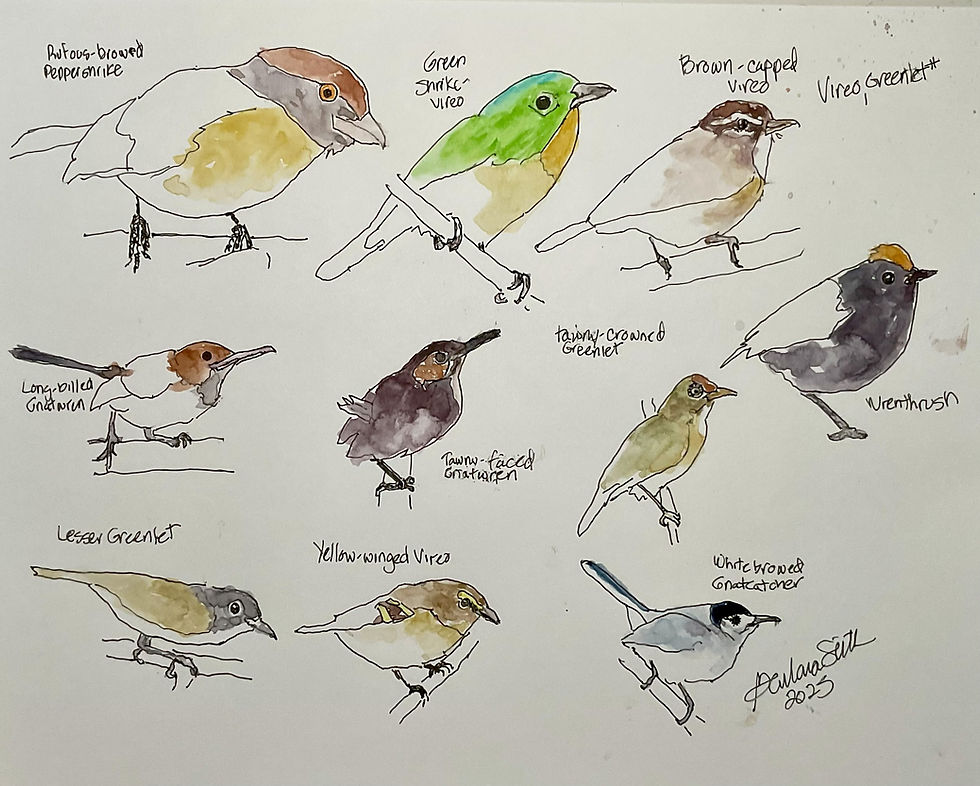 Rufous-browed
Peppershrike
Green
Shrike-
Vireo
Brown-capped
Vireo
Vireo, Greenlet#
Long-billed
Gnatwren
Tawny-faced
Gnatwren
tawny-crowned
Greenlet
Wrenthrush
Lesser Greenlet
Yellow-winged Vireo
White browed
Gnatcatcher
2025